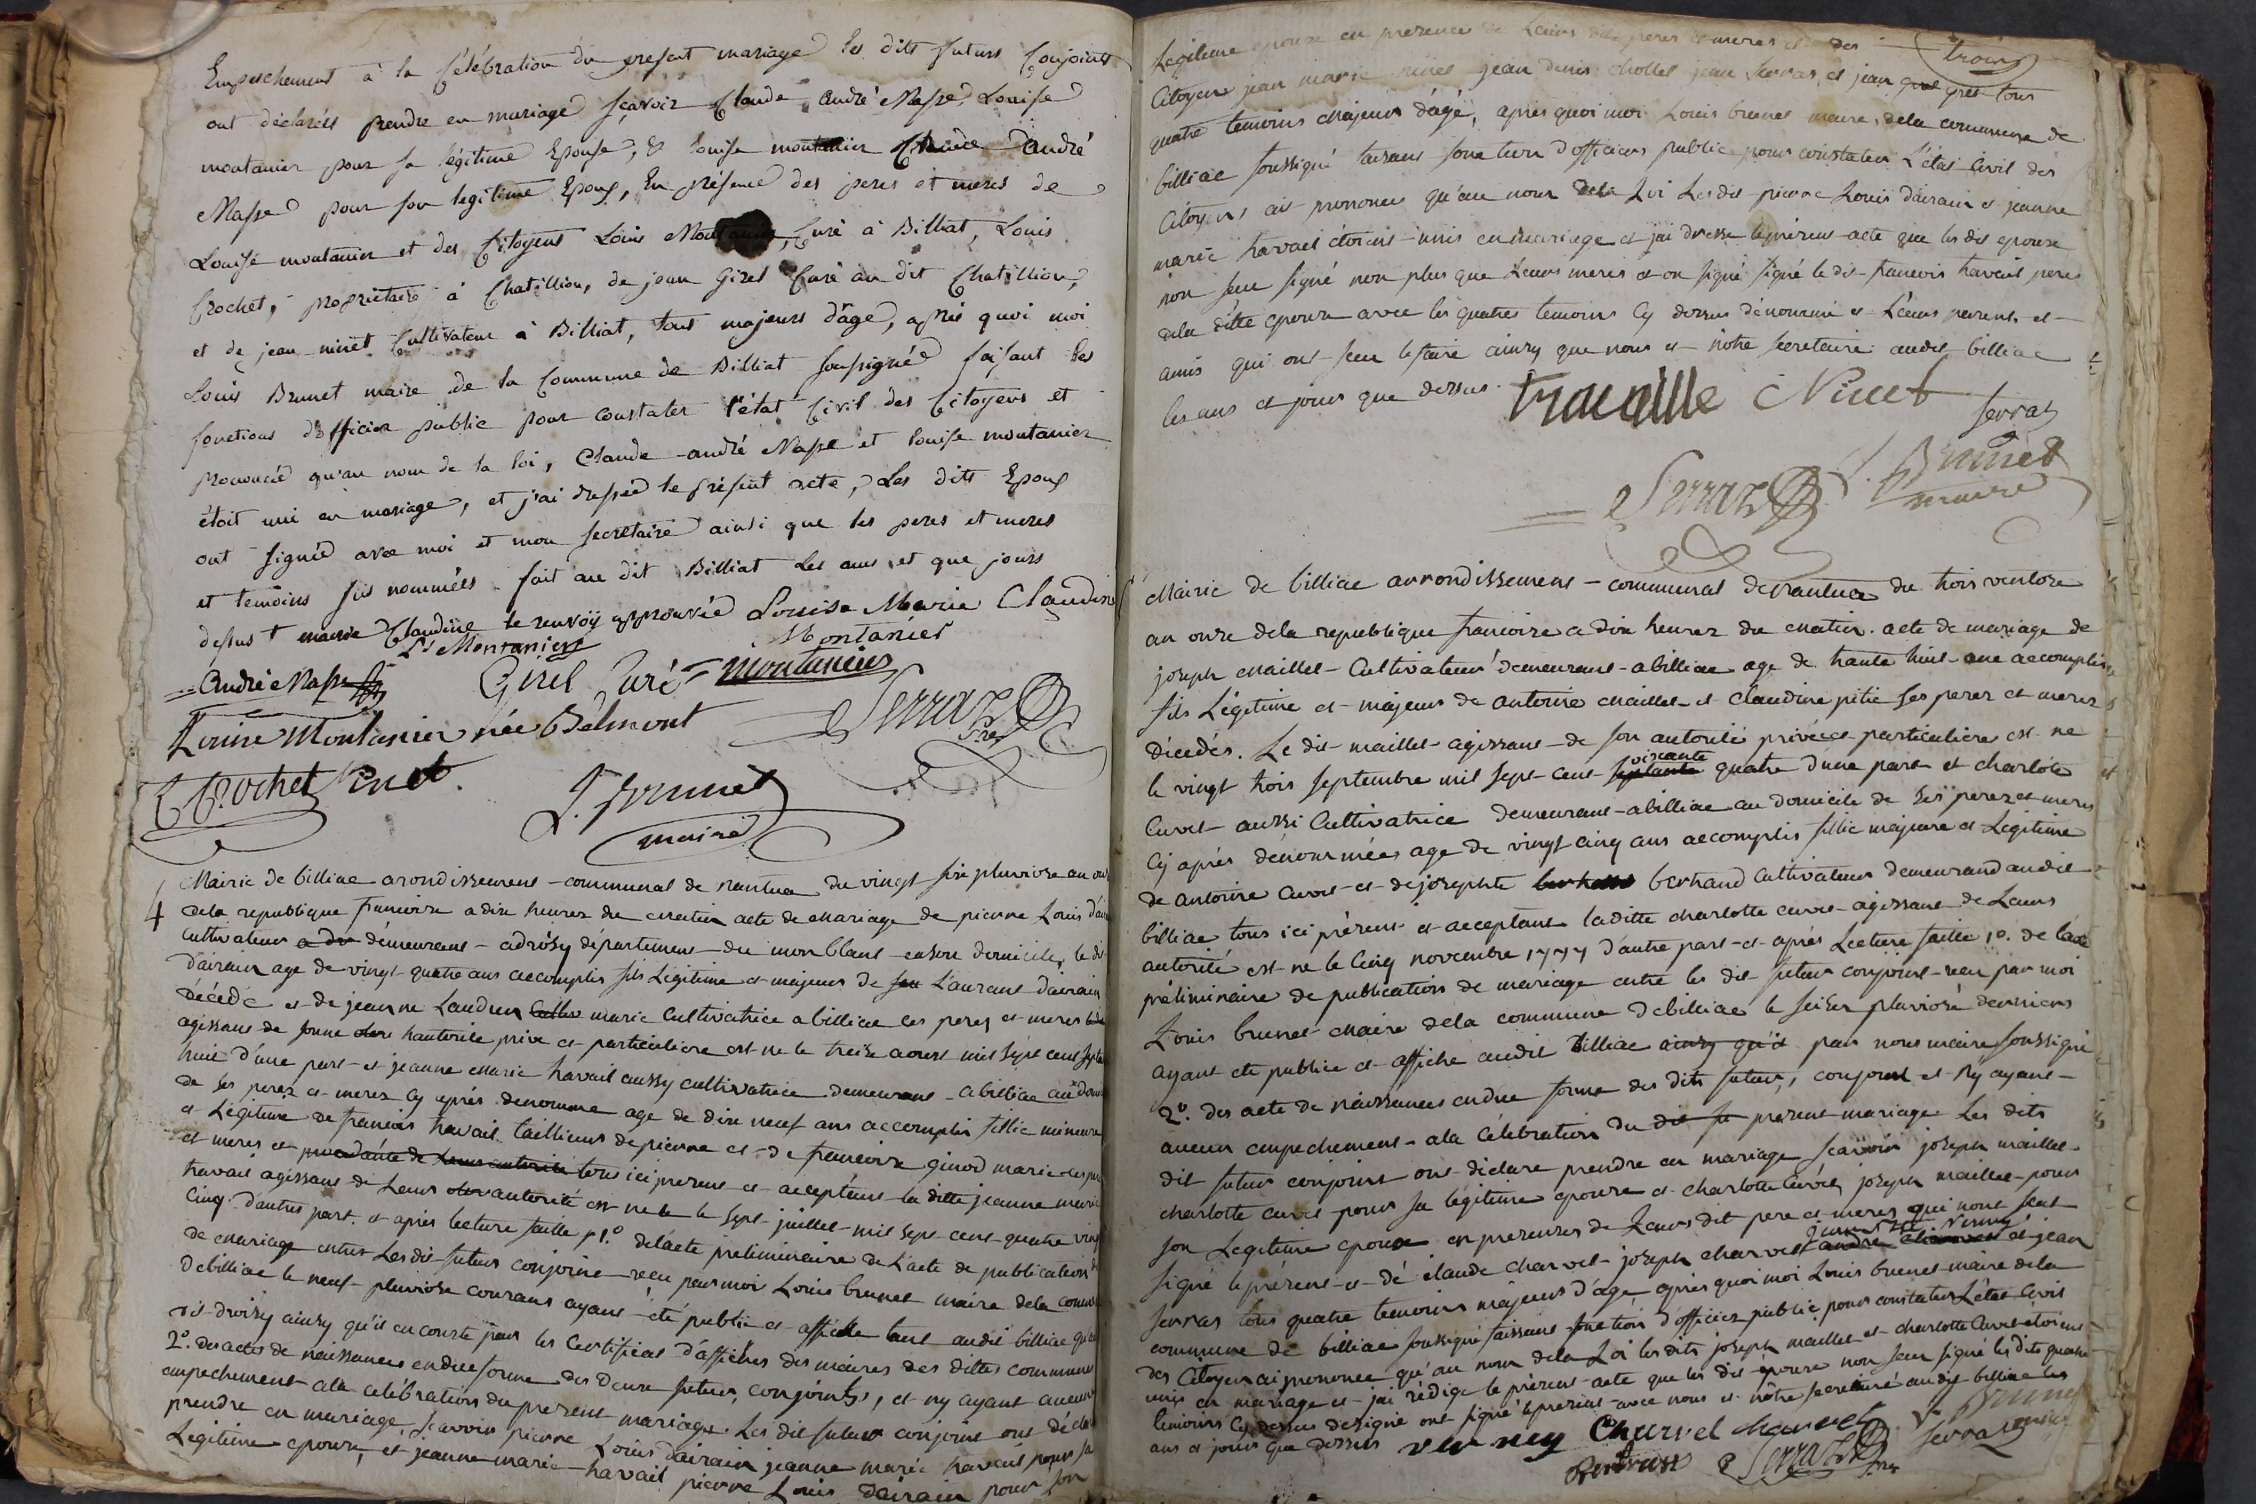 Empechement à la Célébration du present mariage les dits futurs Conjoints
ont déclarés prendre en mariage sçavoir Claude andré Nasse, Louise
montanier pour sa légitime Epouse, & Louise montanier Claude andré
Nasse pour son legitime Epoux, En présence des peres et meres de
Louise montanier et des Citoyens Louis Montanier, Curé à Billiat, Louis
Crochet, propriétaire à Chatillion, de jean Girel Curé au dit Chatillion,
et de jean ninet Cultivateur à Billiat, tous majeurs d'âge, après quoi moi
Louis Brunet maire de la Commune de Billiat soussigné faisant les
fonctions d'officier public pour constater l'état Civil des Citoyens et
prononcé qu'au nom de la loi, Claude andré Nasse et Louise montanier
étoit uni en mariage, et j'ai dressée le présent acte, Les dits Epoux
ont signée avec moi et mon secretaire ainsi que les peres et meres
et temoins sus nommées fait au dit Billiat Les ans et que jours
dessus † marie Claudine le renvoÿ approuvée Louise Marie Claudine
Ls Montanier Montanier
André Nasse Girel Curé montanier
Louise Montanier née Bélmont Serraz Sre
Crochet Ninet L. Brunet
maire
4 Mairie de billiac arondissement communal de nantua du vingt six pluviose an onze
dela republique francoise a dix heures du matin acte de mariage de pierre Louis d'airain
Cultivateur a du démeurant adrôisy département du mon blanc en son domicile, le dit
d'airain age de vingt quatre ans accomplis fils Legitime et majeur de feu Laurant dairain
décédé et de jeanne Laudrun Cultiv marie Cultivatrice a billiac ces peres et meres
agissant de sonne dors hautorite prive et particuliere est ne le treize aoust mil sept cent septante
huit d'une part et jeanne marie travail aussy cultivatrice demeurant abilliac au domicile
de ses peres et meres cy après denomme age de dix neuf ans accomplis fillie mineure
et Légitime de francois travail taillieur de pierre et de francoise ginod mariés ces peres
et meres et procédante de Leurs autorité tous ici present et acceptant la ditte jeanne marie
travail agissant de Leurs dors autorité est ne le le sept juillet mil sept cent quatre vingt
Cinq d'autres part. et après lecture faitte 1º delacte preliminaire de L'acte de publication de
de mariage entre Les dit futurs conjoint reçu par moi Louis brunet maire dela commune
debilliac le neuf pluviose courant ayant été publié et affiche tant audit billiac qu'au
dit droisy ainsy qu'il en conste par les Certificat d'affiches des maires des dittes communes
2º. Des actes de naissances en due forme des deux futurs, conjoints, et ny ayant aucun
empechement ala célébration du present mariage Les dit futurs conjoint ont déclaré
prendre en mariage, scavoir pierre Louis dairain jeanne marie travail pour sa
Legitime epouse, et jeanne marie travail pierre Louis dairain pour son
trois
Legitime epouse en presence de Leurs dits peres et meres et des
Citoyens jean marie ninet jean denis chollet jean Serras et jean tous
quatre temoins majeurs d'âge, apres quoi moi Louis brunet maire dela commune de
billiac soussigné faisant fonction d'officier public pour constater L'état Civil des
Citoyens ait prononcé qu'au nom dela Loi Lesdit pierre Louis dairain et jeanne
marie travail étoient unis en mariage et jai dresse le present acte que les dit epoux
non seu signé non plus que Leurs meres et on signé signé le dit francois travail pere
dela ditte epouse avec les quatres temoins Cy dessus dénommé et Leurs parents et
amis qui ont seu lefaire ainsy que nous et notre secretaire audit billiac
les ans et jours que dessus. travaille Ninet
Serraz
Serraz L. Brunet
maire
Mairie de billiac arrondissement communal denantua du trois ventose
an onze dela republique francoise a dix heures du matin. acte de mariage de
joseph maillet Cultivateur demeurant abilliac age de trante huit ans accomplis
fils Légitime et majeur de antoine maillet et Claudine pitie ses peres et meres
décédés. Le dit maillet agissant de son autorité privée et particuliere est né
le vingt trois septembre mil sept cent septante oixante quatre d'une part et charlote
Curvet aussi Cultivatrice demeurant abilliac au domicile de ses peres et meres
Cy après dénommées age de vingt cinq ans accomplis fillie majeure et Légitime
de antoine curvet et de josephte bertrand Cultivateur demeurand audit
billiac tous ici présent et acceptant laditte charlotte curvet agissant de Leurs
autorité est ne le Cinq novembre 1777 d'autre part et après Lecture faitte 1º. de lacte
préliminaire de publication de mariage entre les dit futur conjoint reçu par moi
Louis brunet maire dela commune debilliac le seize pluviose derniers
ayant ete publie et affiche audit billiac ainsy qu'il par nous maire soussigné
2º. des acte de naissances endue forme des dits futurs, conjoint et n'y ayant
aucun empechement ala Célébration du dit fu present mariage Les dits
dit futur conjoint ont déclaré prendre en mariage scavoir joseph maillet
charlotte curvet pour sa legitime epouse et charlotte curvet joseph maillet pour
son Legitime epoux en presences de Leurs dit pere et meres qui nont seus
signé le présent et de claude charvet joseph charvet andré charvet et jean
Serras tous quatre temoins majeurs d'age après quoi moi Louis brunet maire dela
commune de billiac soussigné faissant fonction d'officier public pour constater L'état Civil
des Citoyen ai prononcé qu'au nom dela Loi les dits joseph maillet et charlotte Curvet étoient
unis en mariage et jai rédigé le present acte que les dit epoux non seu signé les dits quatre
temoins Cy dessus designé ont signé le present avec nous et notre secretaire audit billiac les
ans et jours que dessus verney Charvet charvet L. Brunet
Bertrand Serraz Sre Serraz maire